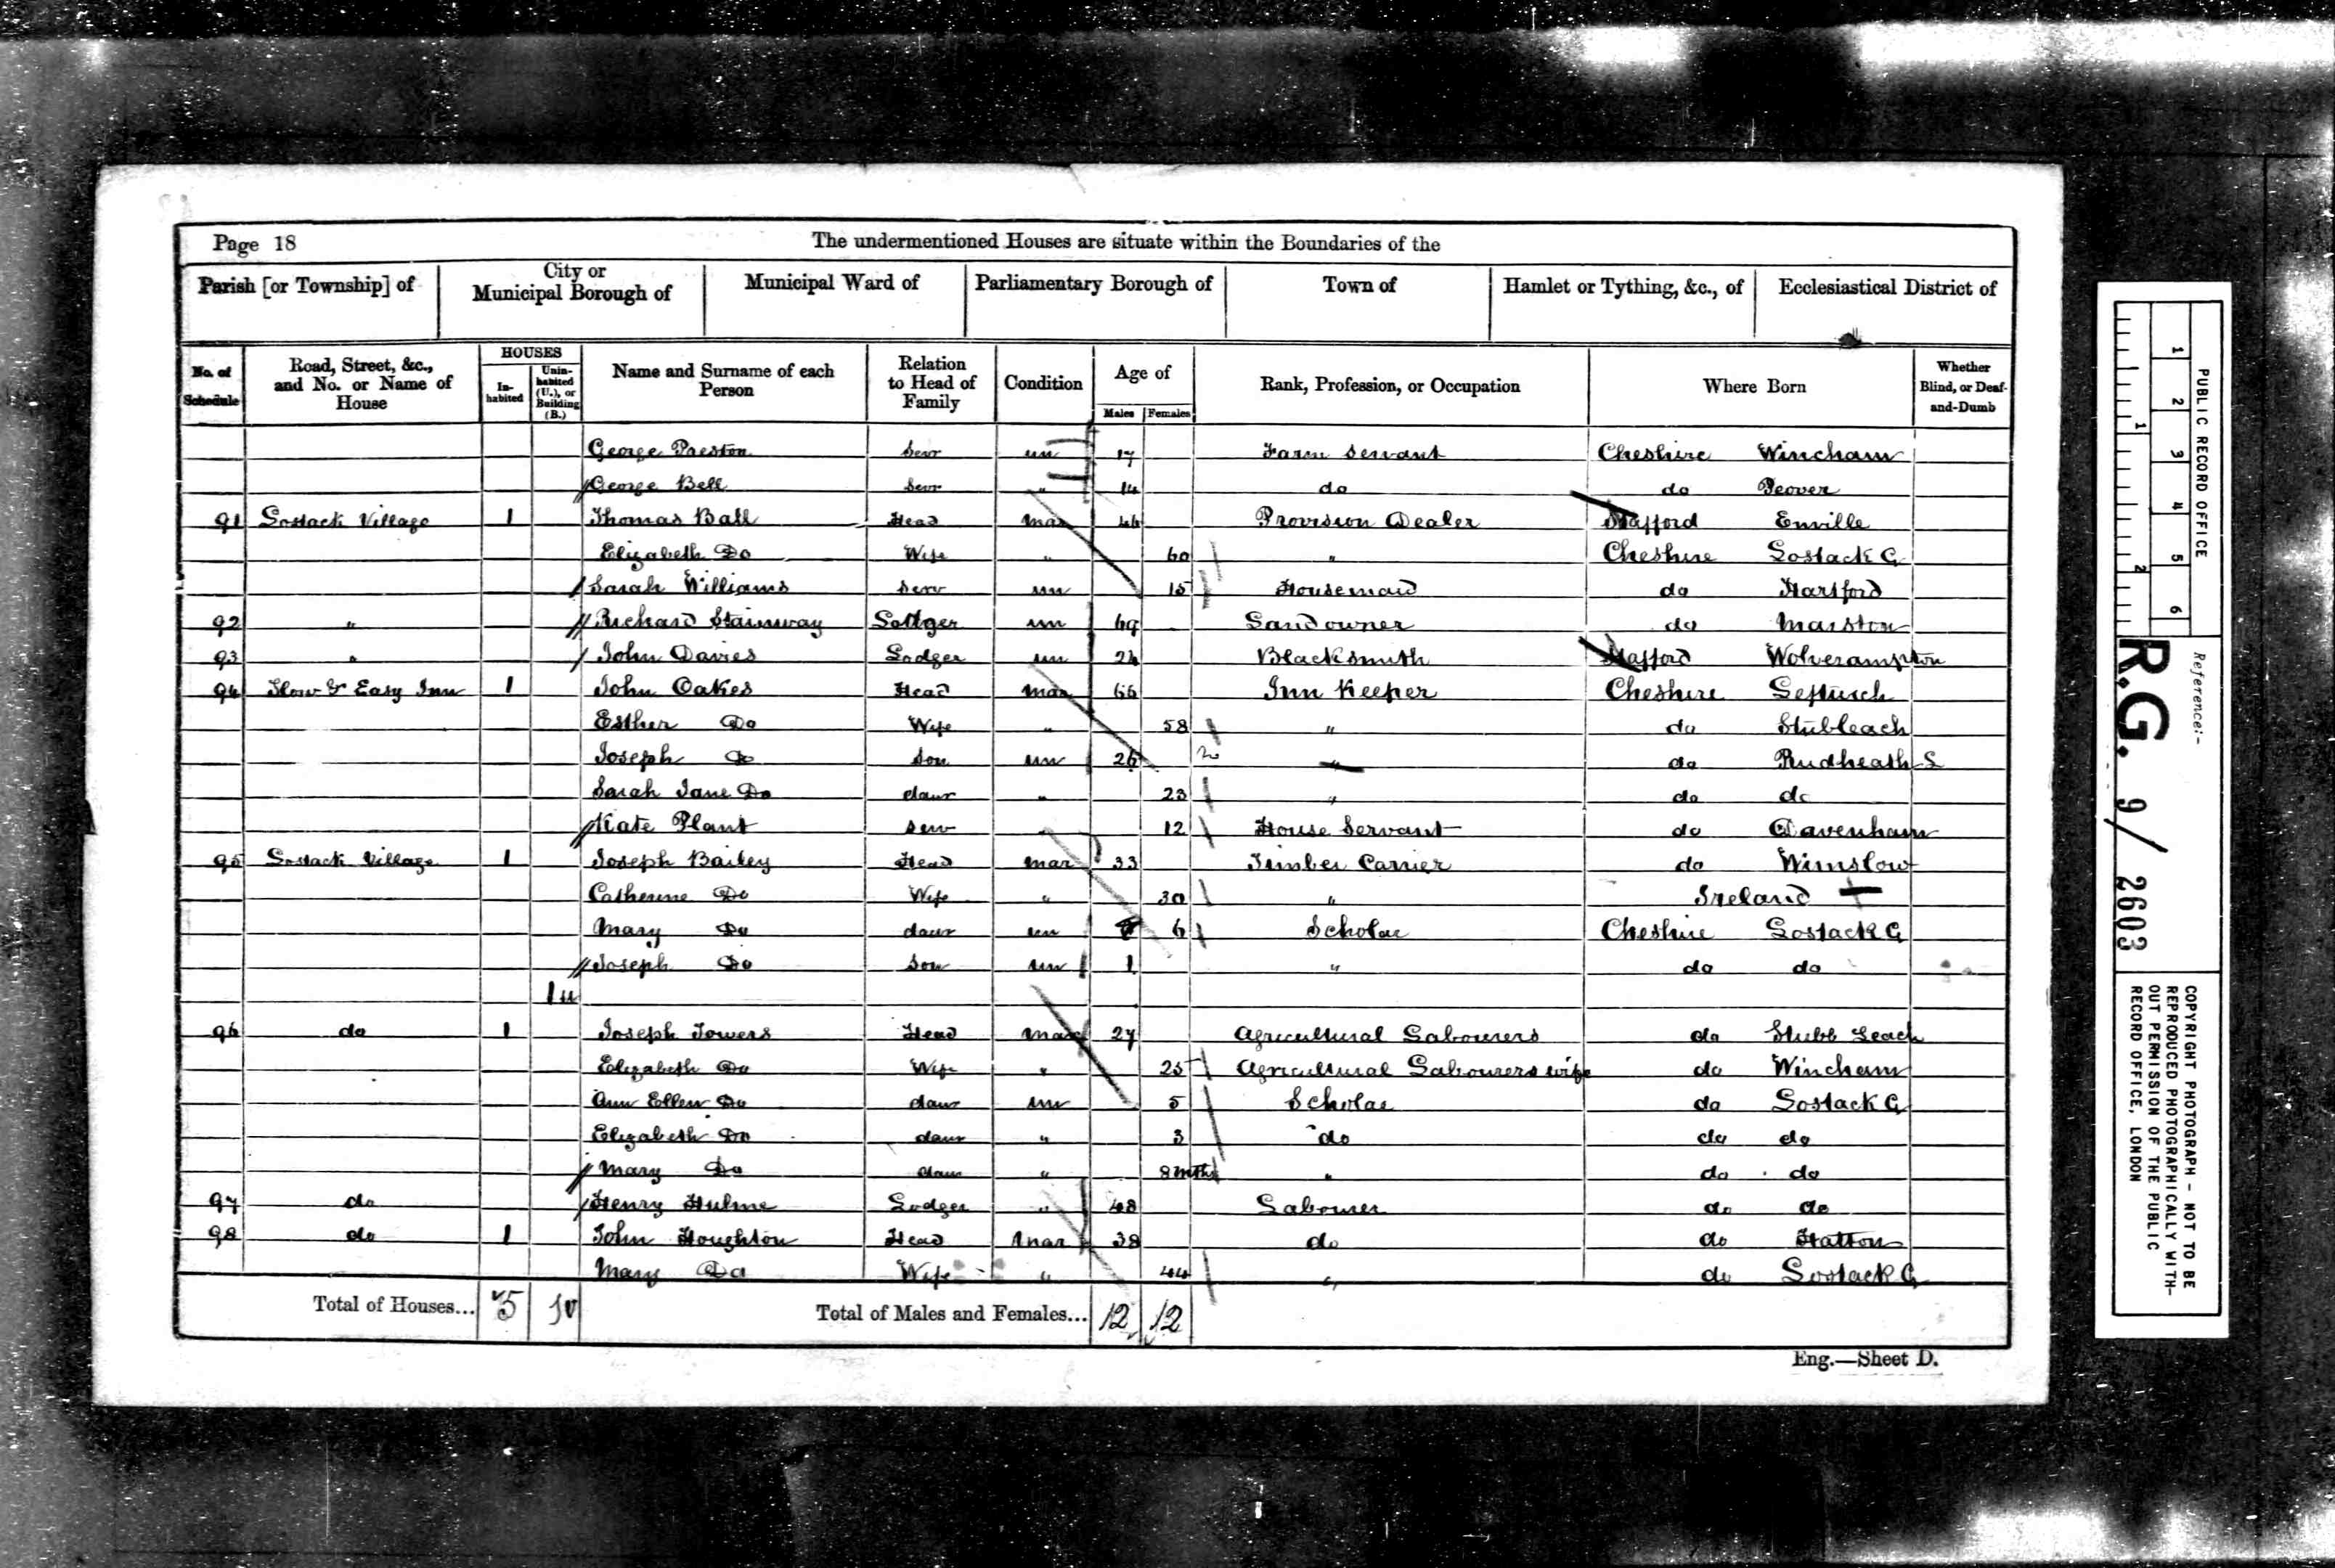 Page 18 The undermentioned Houses are situate within the Boundaries of the
Parish [or Township] of City or Municipal Borough of Municipal Ward of Parliamentary Borough of Town of Hamlet or Tything, &c., of Ecclesiastical District of
No. of Schedule Road, Street, &c., and No. or Name of House HOUSES Inhabited Uninhabited (U.), or Building (B.) Name and Surname of each Person Relation to Head of Family Condition Age of Males Females Rank, Profession, or Occupation Where Born Whether Blind, or Deaf-and-Dumb
George Preston Serv un 17 Farm Servant Cheshire Wincham
George Bell Serv " 14 do do Peover
91 Lostock Village 1 Thomas Ball Head Mar 46 Provision Dealer Stafford Enville
Elizabeth Do Wife " 60 " Cheshire Lostock G
Sarah Williams Serv un 15 Housemaid do Hartford
92 " Richard Stainway Lodger un 69 Landowner do Marston
93 " John Davies Lodger un 24 Blacksmith Stafford Wolverampton
94 Slow & Easy Inn 1 John Oakes Head Mar 66 Inn Keeper Cheshire
Esther Do Wife " 58 " do Stubleach
Joseph Do Son un 26 " do Rudheath L
Sarah Jane Do daur " 23 " do do
Kate Plant Serv " 12 House Servant do Davenham
95 Lostock Village 1 Joseph Bailey Head Mar 33 Timber Carrier do Winslow
Catherine Do Wife " 30 " Ireland
Mary Do daur un 6 Scholar Cheshire Lostock G
Joseph Do Son un 1 " do do
1 u
96 do 1 Joseph Towers Head Mar 27 Agricultural Labourers do Stubb Leach
Elizabeth Do Wife " 25 Agricultural Labourers wife do Wincham
Ann Ellen Do daur un 5 Scholar do Lostock G
Elizabeth Do daur " 3 do do do
Mary Do daur " 8 mths " do do
97 do Henry Hulme Lodger " 48 Labourer do do
98 do 1 John Houghton Head Mar 38 do do Hatton
Mary Do Wife " 44 " do Lostock G
Total of Houses... 5 1 u Total of Males and Females... 12 12
Eng.—Sheet D.
PUBLIC RECORD OFFICE
1 2 3 4 5 6
1 2
Reference:-
R.G. 9/2603
COPYRIGHT PHOTOGRAPH - NOT TO BE
REPRODUCED PHOTOGRAPHICALLY WITH-
OUT PERMISSION OF THE PUBLIC
RECORD OFFICE, LONDON